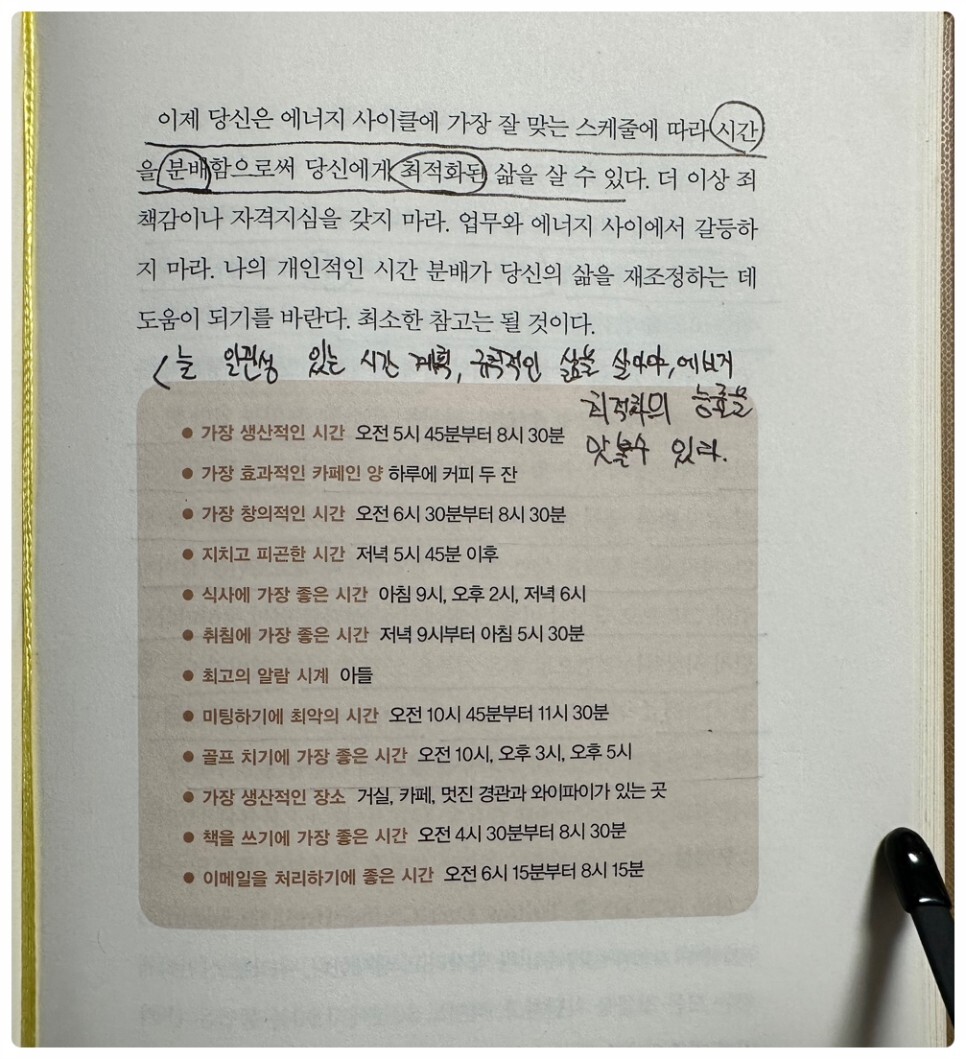 이제 당신은 에너지 사이클에 가장 잘 맞는 스케줄에 따라 시간
을 분배함으로써 당신에게 최적화된 삶을 살 수 있다. 더 이상 죄
책감이나 자격지심을 갖지 마라. 업무와 에너지 사이에서 갈등하
지 마라. 나의 개인적인 시간 분배가 당신의 삶을 재조정하는 데
도움이 되기를 바란다. 최소한 참고는 될 것이다.
늘 일관성 있는 시간 계획, 규칙적인 삶을 살아야, 에너지
최적화의 능률을
맛볼수 있다.
● 가장 생산적인 시간 오전 5시 45분부터 8시 30분
● 가장 효과적인 카페인 양 하루에 커피 두 잔
● 가장 창의적인 시간 오전 6시 30분부터 8시 30분
● 지치고 피곤한 시간 저녁 5시 45분 이후
● 식사에 가장 좋은 시간 아침 9시, 오후 2시, 저녁 6시
● 취침에 가장 좋은 시간 저녁 9시부터 아침 5시 30분
● 최고의 알람 시계 아들
● 미팅하기에 최악의 시간 오전 10시 45분부터 11시 30분
● 골프 치기에 가장 좋은 시간 오전 10시, 오후 3시, 오후 5시
● 가장 생산적인 장소 거실, 카페, 멋진 경관과 와이파이가 있는 곳
● 책을 쓰기에 가장 좋은 시간 오전 4시 30분부터 8시 30분
● 이메일을 처리하기에 좋은 시간 오전 6시 15분부터 8시 15분